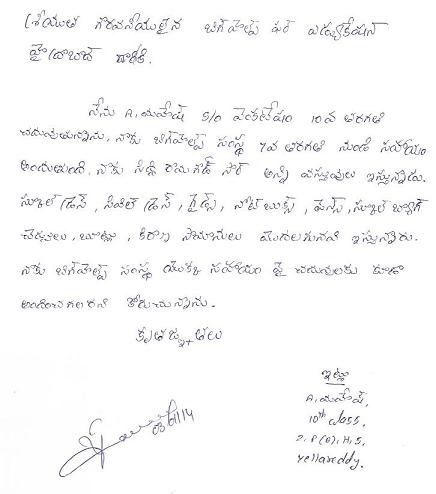 శ్రీయుత గౌరవనీయులైన బిగ్‌హెల్ప్ ఫర్ ఎడ్యుకేషన్
హైద్రాబాద్ వారికి.
నేను A.మహేష్ S/O వెంకటేషం 10వ తరగతి
చదువుతున్నాను. నాకు బిగ్‌హెల్ప్ సంస్థ 7వ తరగతి నుండి సహాయం
అందుతుంది. నాకు సిద్ది రాంగౌడ్ సార్ అన్ని వస్తువులు ఇస్తున్నాడు.
స్కూల్ డ్రెస్, సివిల్ డ్రెస్, గైడ్స్, నోట్ బుక్స్, పెన్స్, స్కూల్ బ్యాగ్
చెప్పులు, బూట్లు, కిరాణ సామానులు మొదలగునవి ఇస్తున్నారు.
నాకు బిగ్‌హెల్ప్ సంస్థ యొక్క సహాయం పై చదువులకు కూడా
అందించగలరని కోరుచున్నాను.
కృతజ్ఞతలు
ఇట్లు
A.మహేష్.
10th class.
Z.P(B).H.S.
Yellareddy.